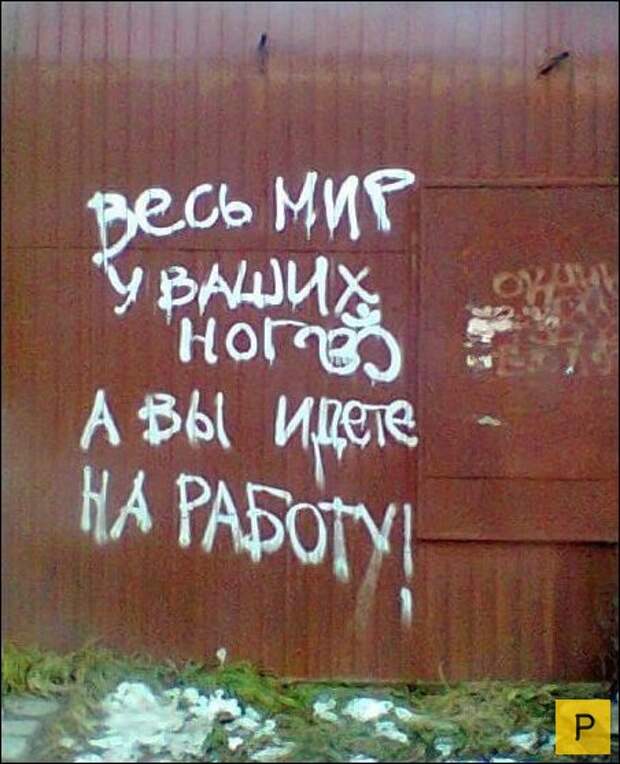 Весь МИР
У ВАШИХ
НОГ ॐ
А ВЫ ИДЕТЕ
НА РАБОТУ!
P